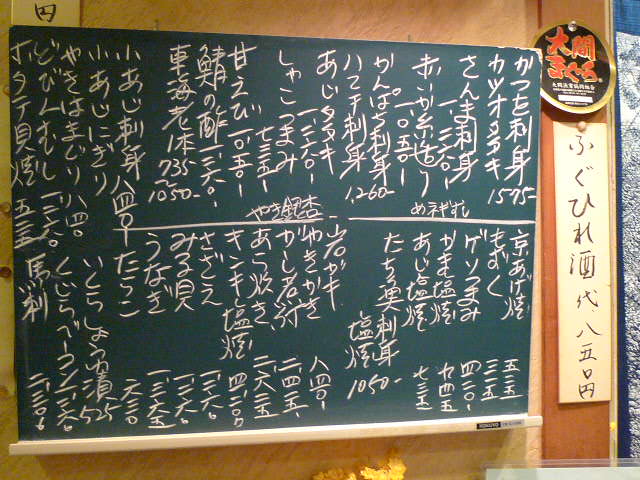 円
かつを刺身
カツオタタキ 1575-
さんま刺身 一、二六〇-
赤いか糸造り 一、〇五〇-
かんぱち刺身 1,260-
ハマチ刺身
あじタタキ 一、二六〇-
しゃこつまみ 七三五-
甘えび 一、〇五〇-
鯖の酢 一、二六〇-
車海老一本 735-~1050-
小あじ刺身 八四〇-
小あじにぎり
やきはまぐり 八四〇
どびんむし 一、二六〇
ホタテ貝焼 五二五
めネギずし
やき銀杏
京あげ焼 五二五
もずく 三一五
ゲソつまみ 四二〇-
かま塩焼 九四五
あじ塩焼 七三五
たち魚刺身
塩焼 1050-
岩ガキ
やきかき 八四〇-
がし若煮
あら炊き
キンキ塩焼
さざえ
みる貝
うなぎ
たらこ 六三〇
いくらしょう油漬 525
くじらベーコン 一、二六〇
馬刺 二、一〇〇
大間
まぐろ
大間漁業協同組合
ふぐひれ酒 一代、八五〇円
KOKUYO